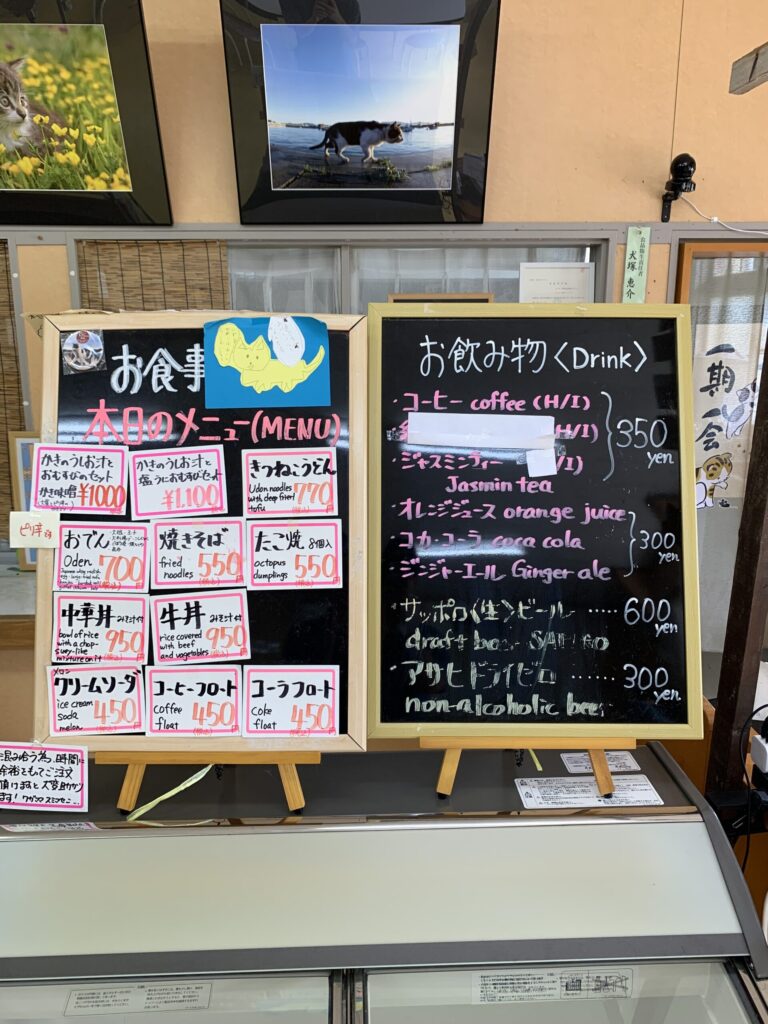 食品衛生責任者
犬塚 恵介
一期一会
お食事
本日のメニュー(MENU)
かきのうしお汁と
おむすびのセット
かき味噌 ¥1000
かきのうしお汁と
塩うにおむすびセット
¥1.100
きつねうどん
Udon noodles
with deep fried
tofu
770
ピリ辛です
おでん
Oden
700
(税込)
焼きそば
fried
noodles
550
(税込)
たこ焼 8個入
octopus
dumplings
550
(税込)
中華丼 みそ汁付
bowl of rice
with a chop-
suey-like
mixture on it
950
(税込)
牛丼 みそ汁付
rice covered
with beef
and vegetables
950
(税込)
メロン
クリームソーダ
ice cream
soda
melon
450
(税込)
コーヒーフロート
coffee
float
450
(税込)
コーラフロート
Coke
float
450
(税込)
お飲み物〈Drink〉
・コーヒー coffee (H/I)
H/I)
・ジャスミンティー /I)
Jasmin tea
350
yen
・オレンジジュース orange juice
・コカ・コーラ coca cola
・ジンジャーエール Ginger ale
300
yen
・サッポロ〈生〉ビール ‥‥ 600
yen
draft
・アサヒドライゼロ ‥‥‥ 300
yen
non-alcoholic beer
混み合う為、時間に
余裕をもってご注文
頂けますと大変助かり
ます!